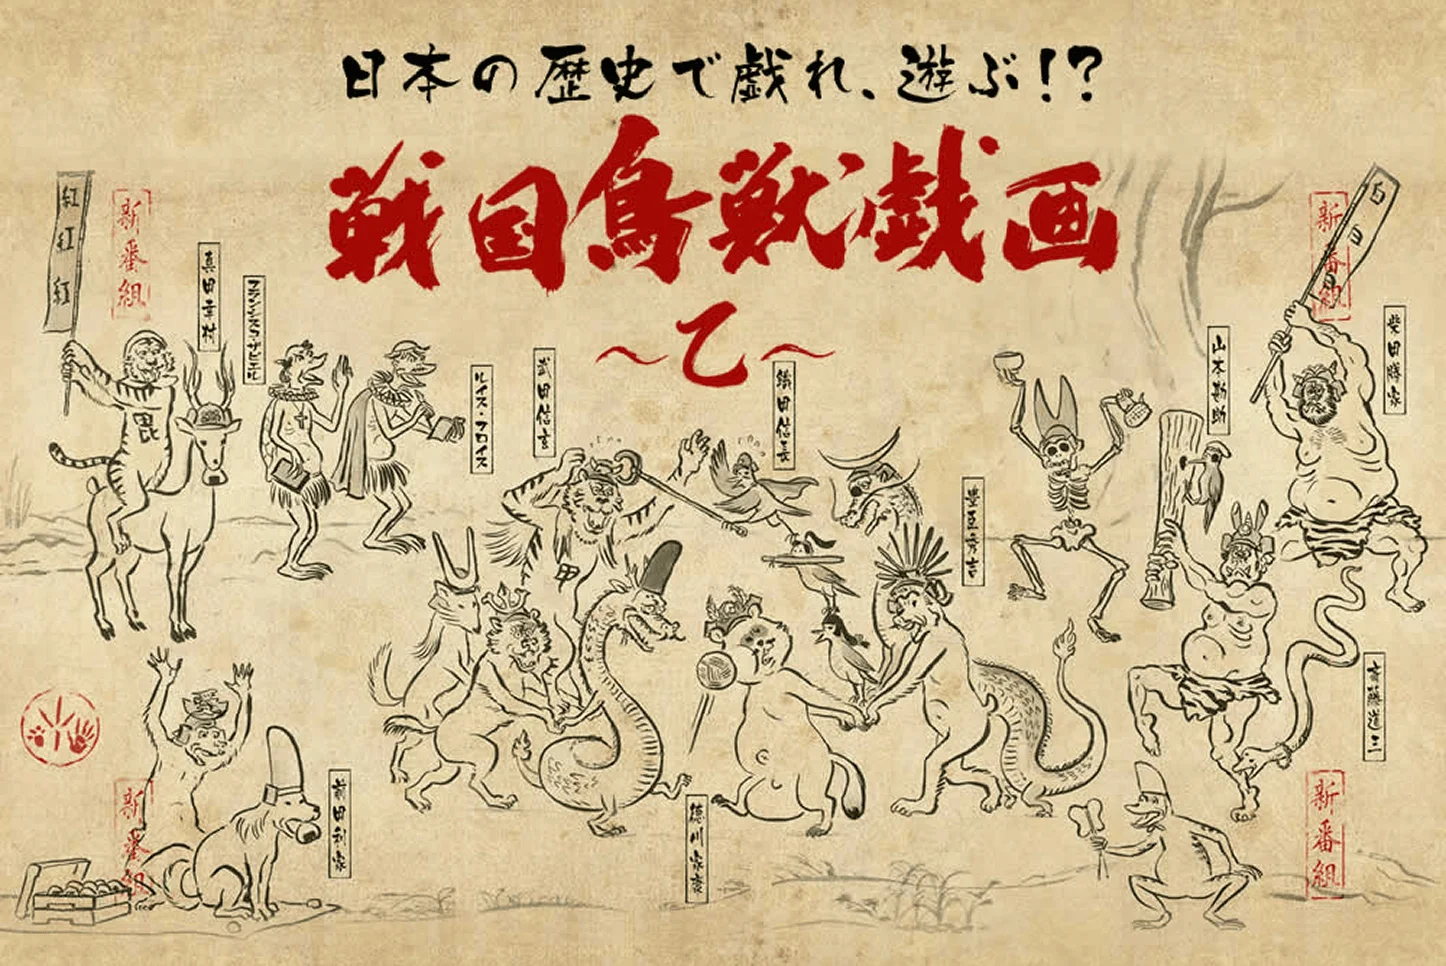 日本の歴史で戯れ、遊ぶ!?
戦国鳥獣戯画
～乙～
紅
紅
紅
新番組
真田幸村
フランシスコ・ザビエル
ルイス・フロイス
武田信玄
織田信長
豊臣秀吉
山本勘助
新番組
柴田勝家
毘
甲
斎藤道三
徳川家康
新番組
前田利家
新番組